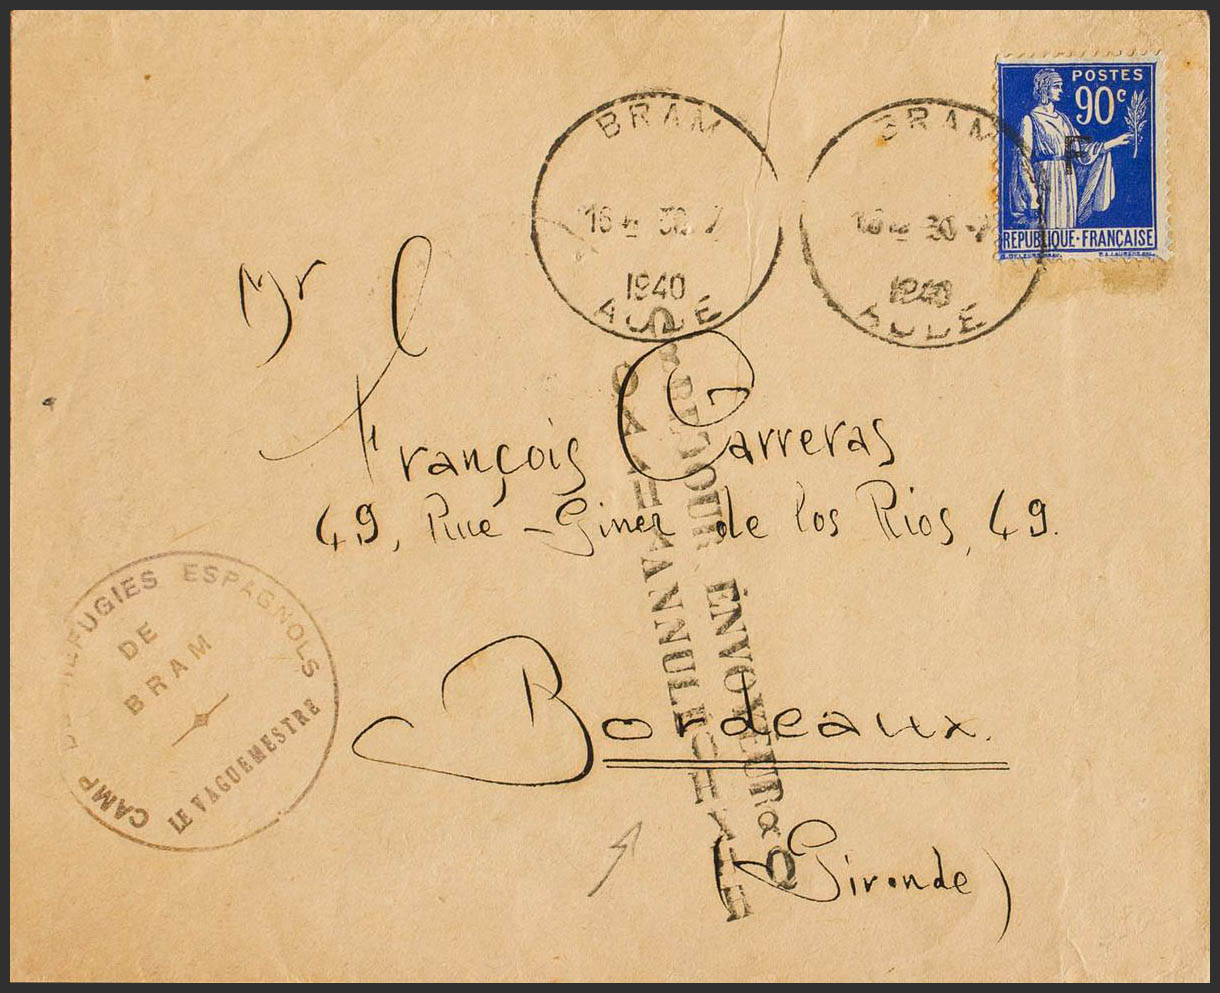 POSTES
90c
F
REPUBLIQUE-FRANÇAISE
BRAM
16 30 7
1940
AUDE
BRAM
30 -7
AUDE
Mr
François Carreras
49, Rue Giner de los Rios, 49.
Bordeaux.
(Gironde)
RETOUR ENVOYEUR
CAMP REFUGIES ESPAGNOLS
DE
BRAM
LE VAGUEMESTRE